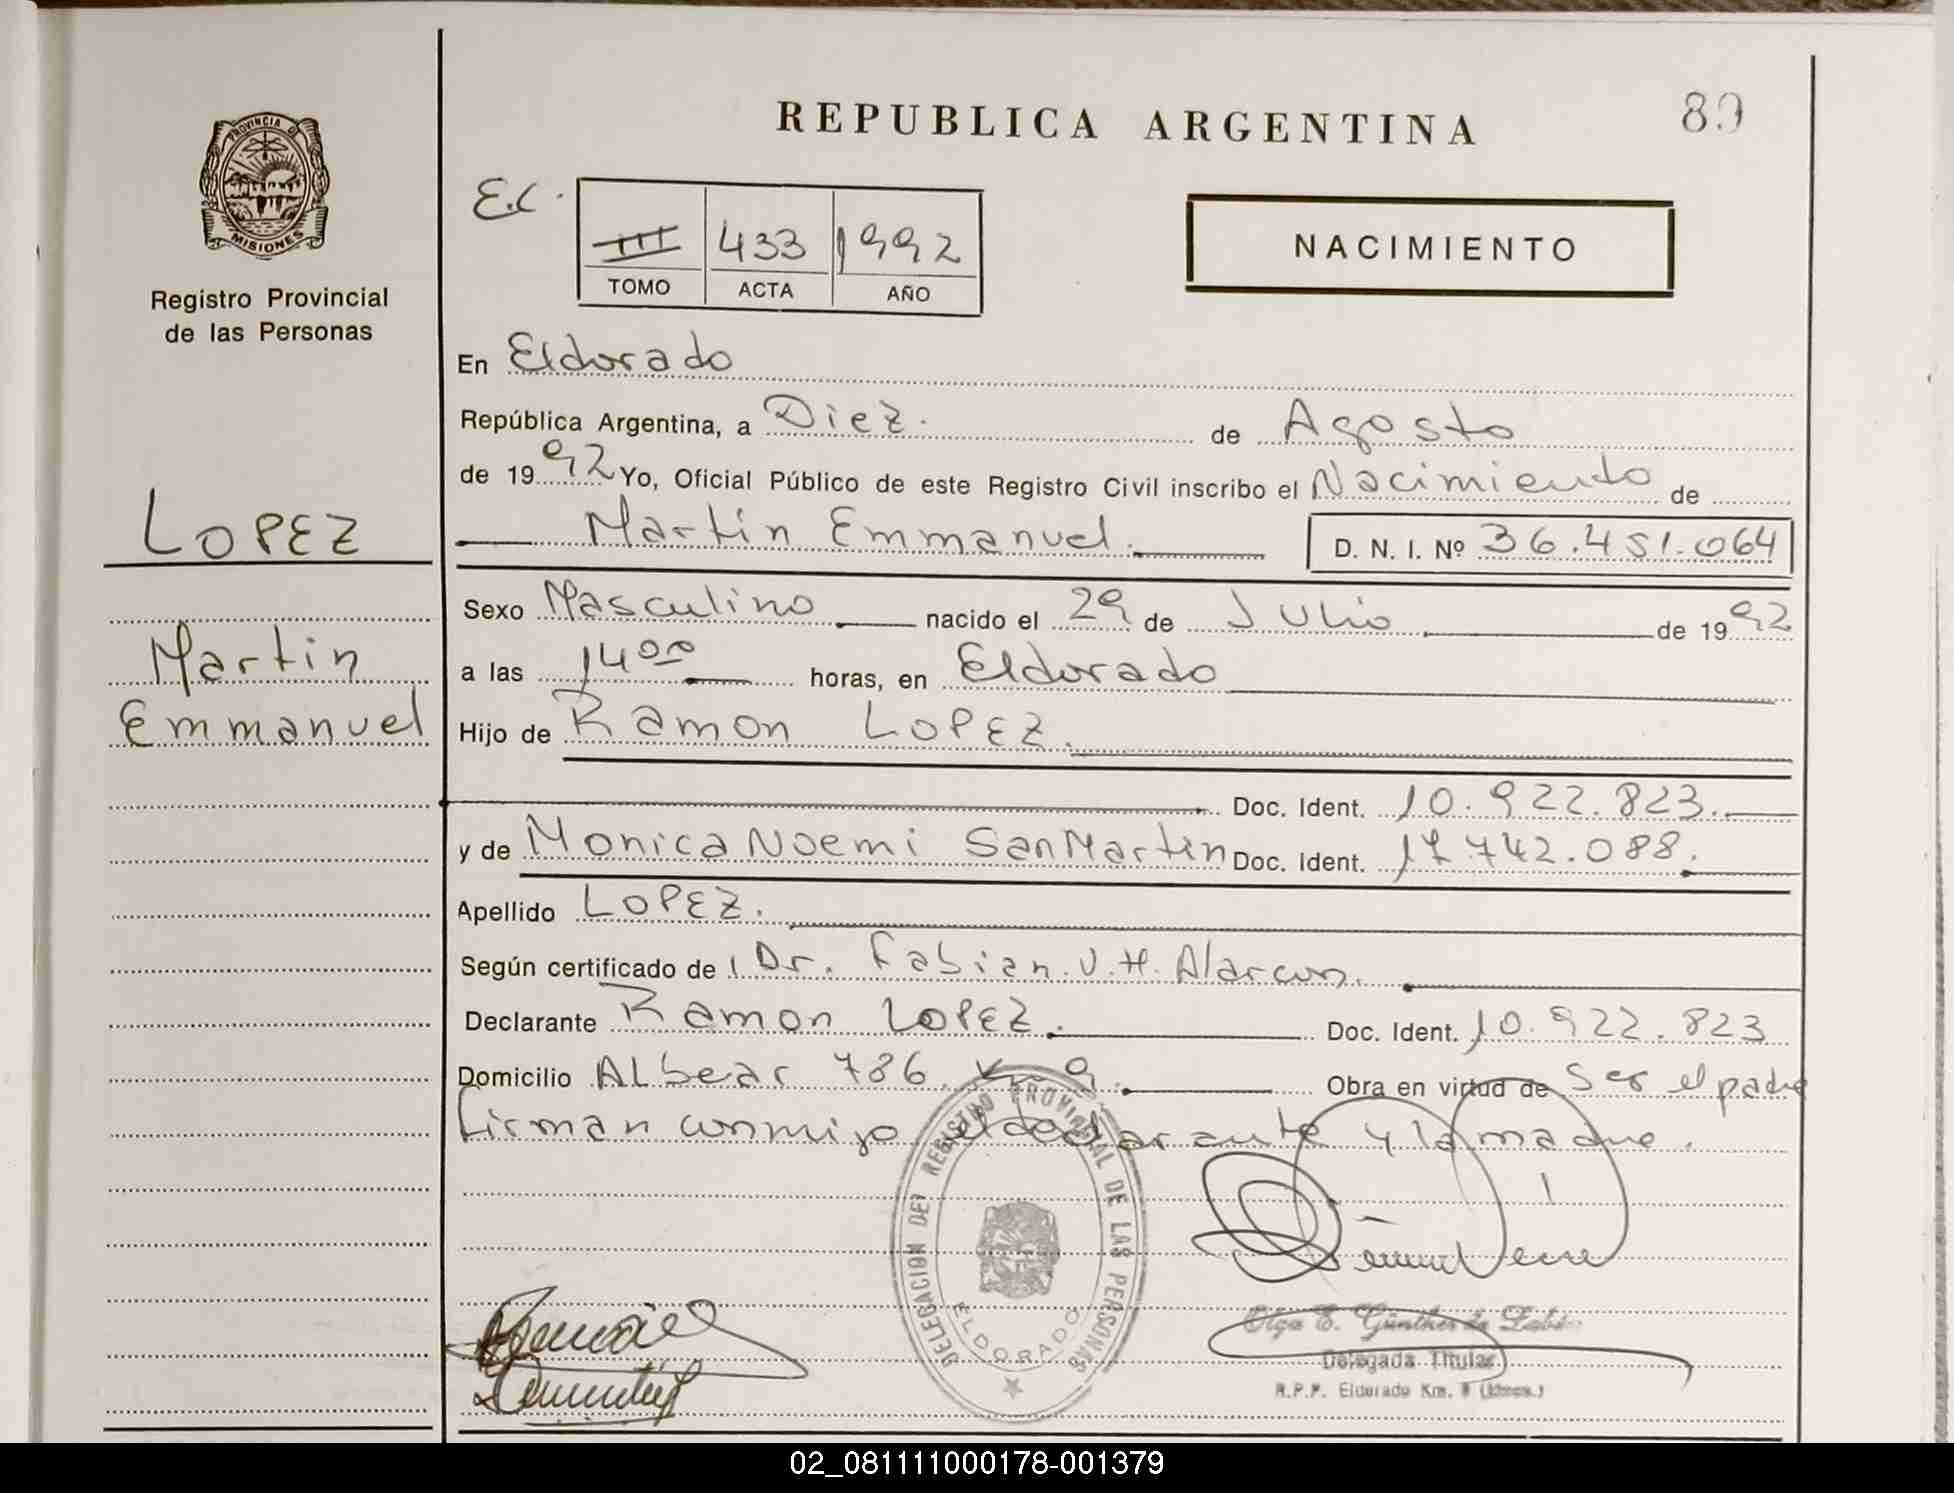 REPUBLICA ARGENTINA
89
PROVINCIA DE
MISIONES
Registro Provincial
de las Personas
E.C.
III 433 1992
TOMO ACTA AÑO
NACIMIENTO
En Eldorado
República Argentina, a Diez. de Agosto
de 1992 Yo, Oficial Público de este Registro Civil inscribo el Nacimiento de
LOPEZ
Martin Emmanuel. D. N. I. Nº 36.451.064
Sexo Masculino nacido el 29 de Julio de 1992
Martin
a las 14 00 horas, en Eldorado
Emmanuel
Hijo de Ramon LOPEZ.
Doc. Ident. 10.922.823.
y de Monica Noemi SanMartin Doc. Ident. 17.742.088.
Apellido LOPEZ.
Según certificado de Dr. Fabian. V. H. Alarcon.
Declarante Ramon LOPEZ. Doc. Ident. 10.922.823
Domicilio Albear 786 Km 9. Obra en virtud de Ser el padre
firman conmigo el declarante y la madre.
DELEGACION DEL REGISTRO PROVINCIAL DE LAS PERSONAS
ELDORADO
Olga E. Günther de
Delegada Titular
R.P.P. Eldorado Km. 9 (Mnes.)
02_081111000178-001379